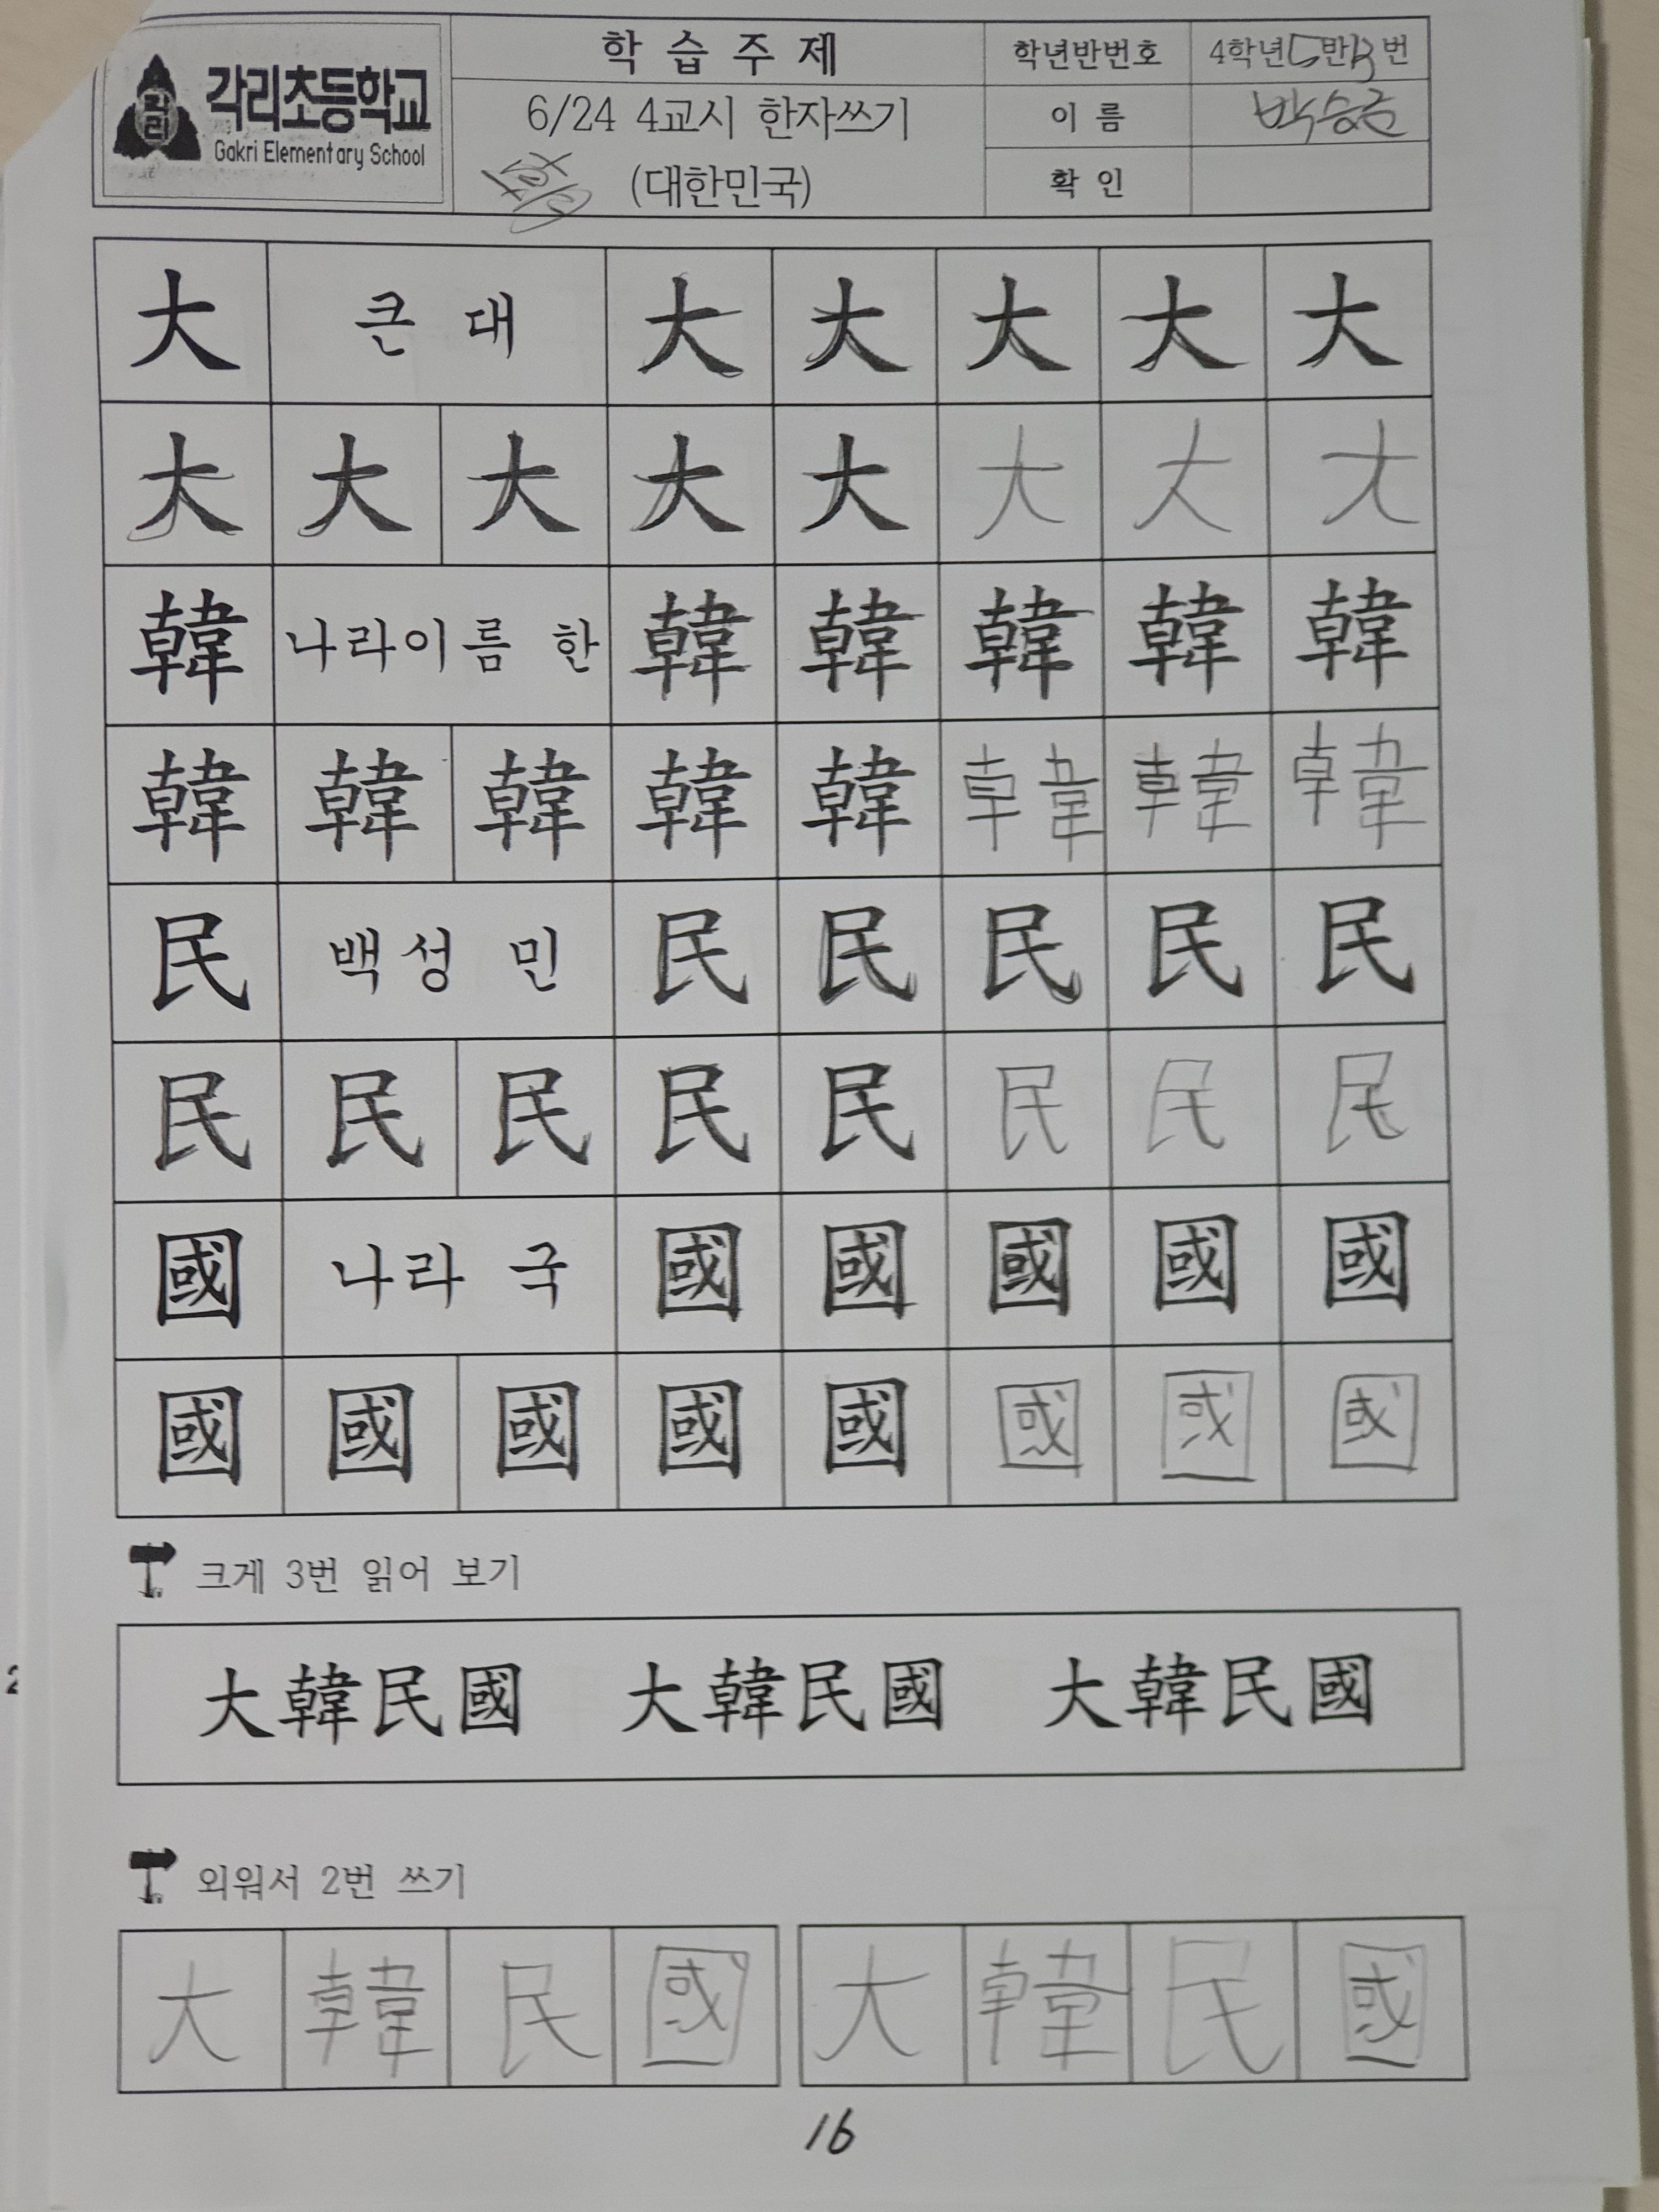 각리초등학교
Gakri Elementary School
학 습 주 제
6/24 4교시 한자쓰기
(대한민국)
학년반번호 4학년 5반 13번
이 름 박승
확 인
大 큰 대 大 大 大 大 大
大 大 大 大 大 大 大 大
韓 나라이름 한 韓 韓 韓 韓 韓
韓 韓 韓 韓 韓 韓 韓 韓
民 백성 민 民 民 民 民 民
民 民 民 民 民 民 民 民
國 나라 국 國 國 國 國 國
國 國 國 國 國 國 國 國
크게 3번 읽어 보기
大韓民國 大韓民國 大韓民國
외워서 2번 쓰기
大 韓 民 國 大 韓 民 國
16